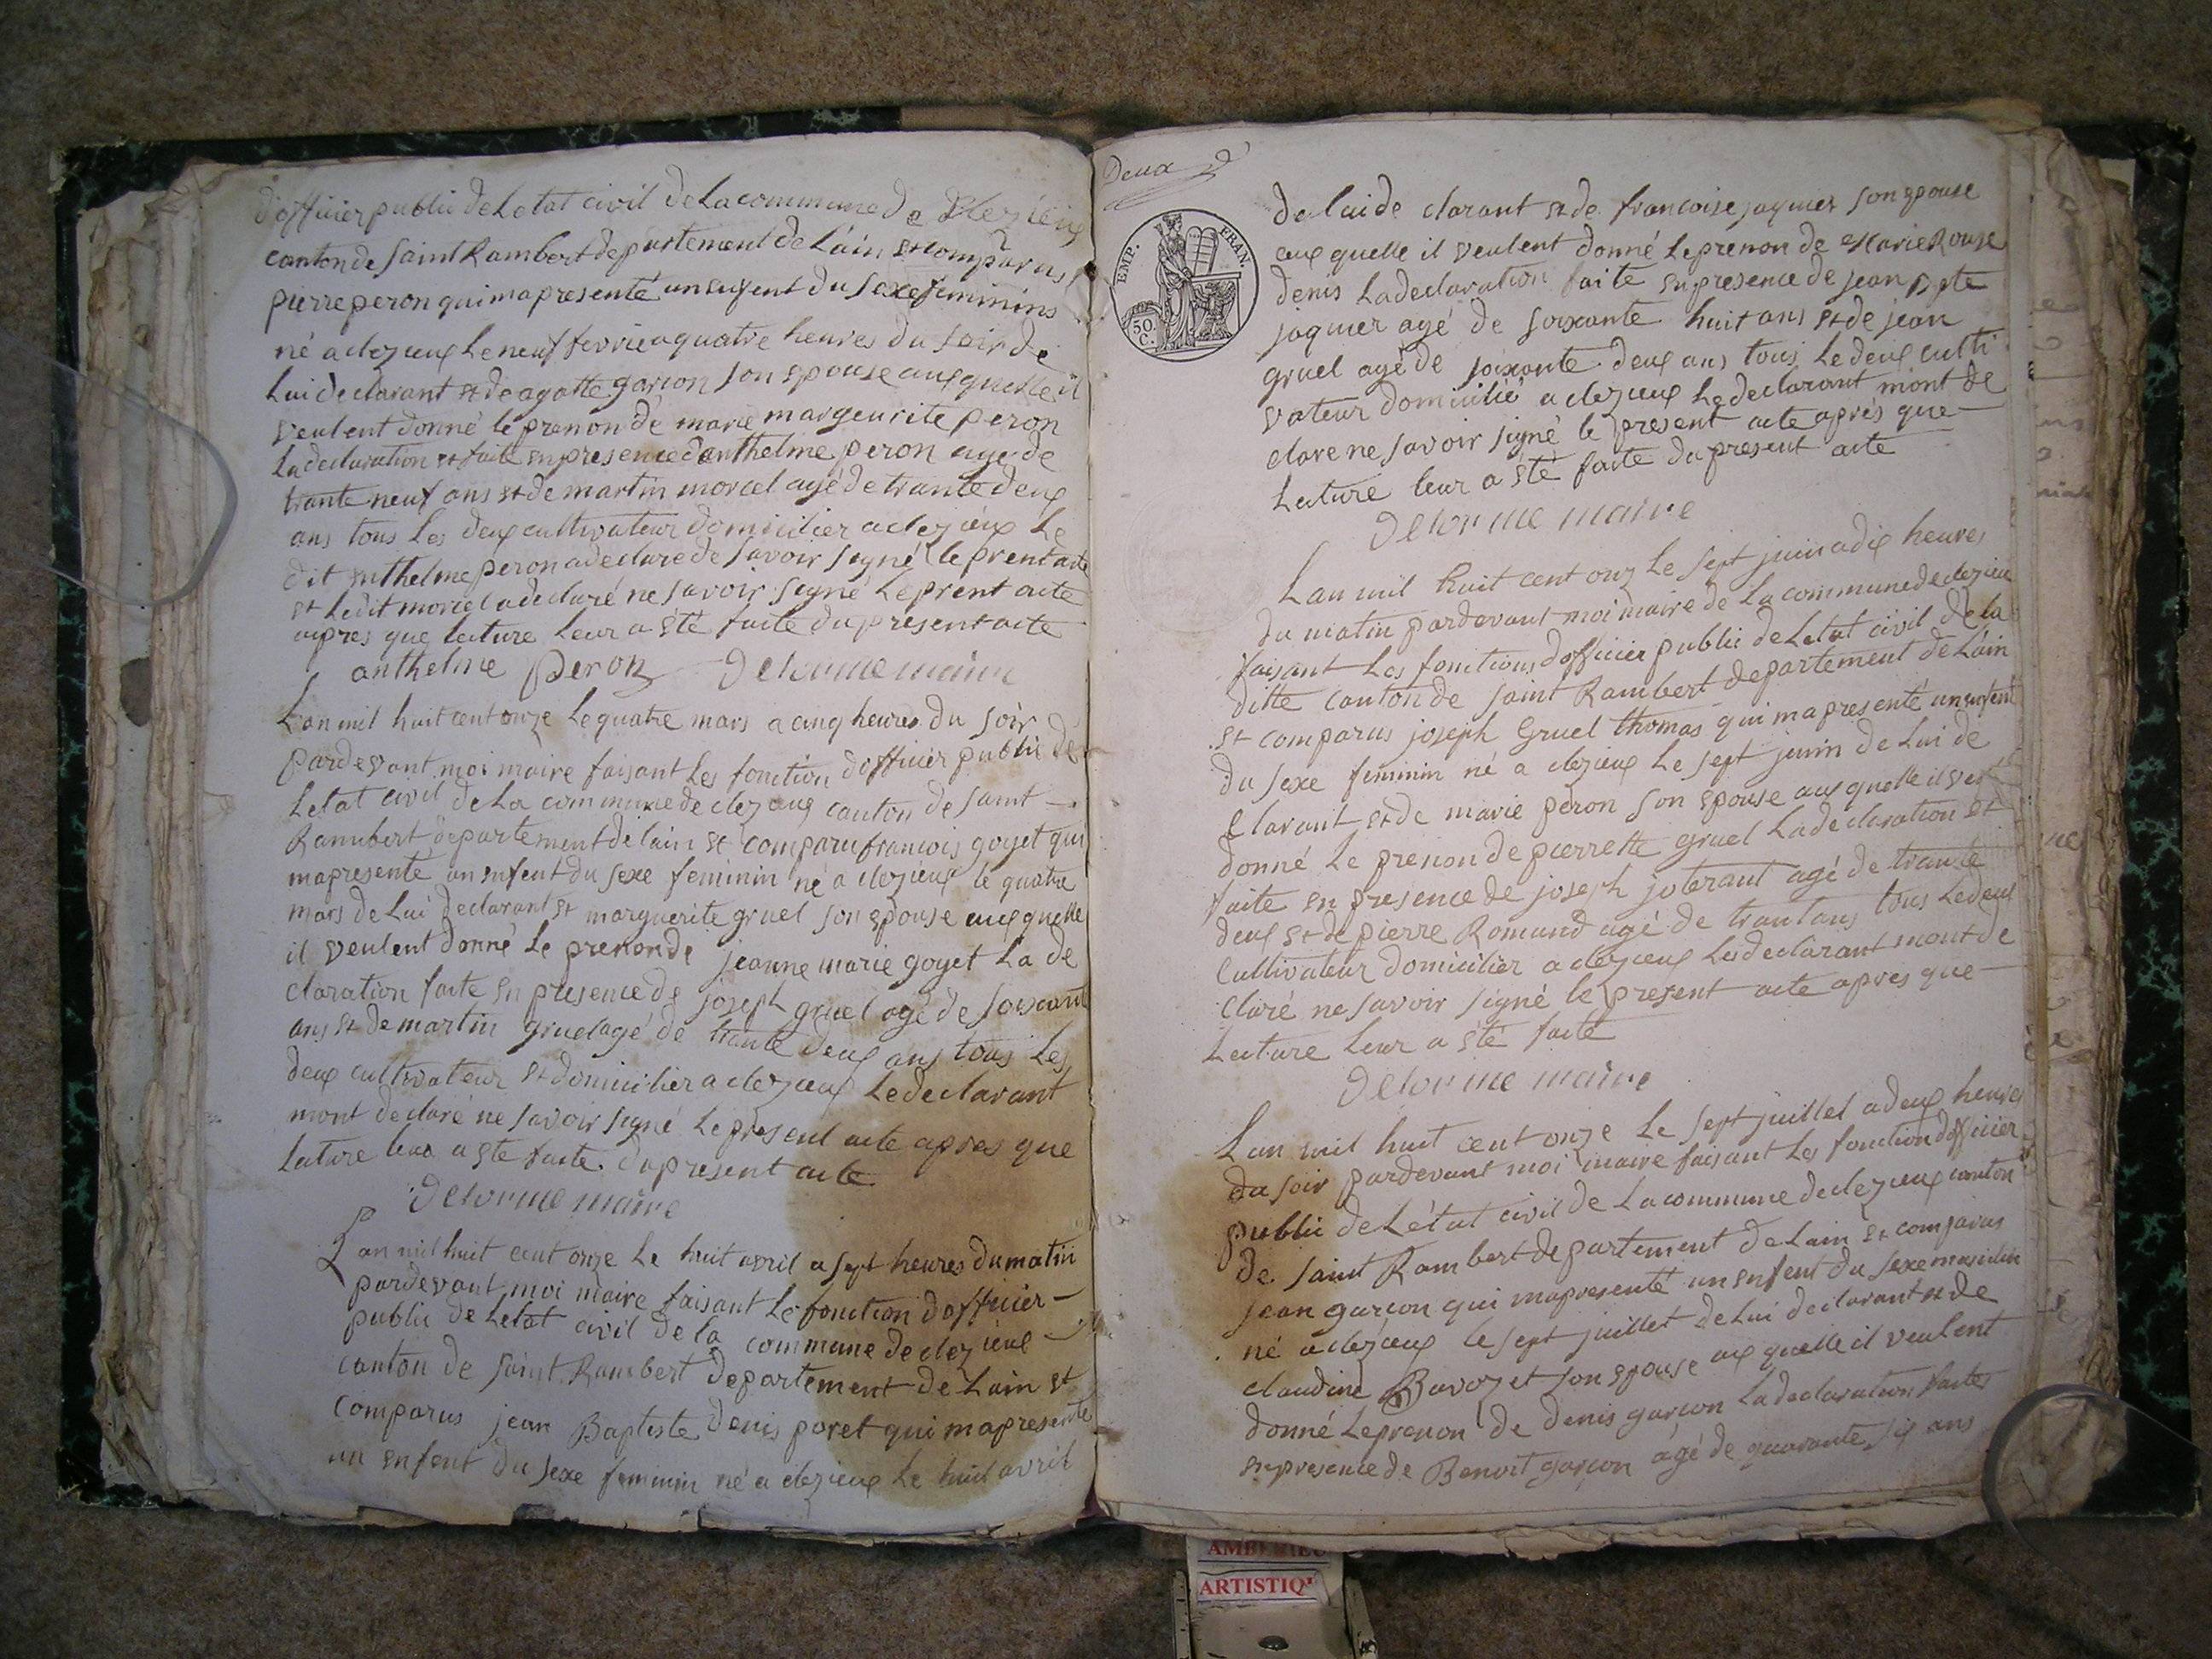 d'officier public de Letat civil de La commune de Clezieux
canton de Saint Rambert departement de Lain est comparus
pierre peron qui ma presenté un enfent du Sexe feminins
né a clezieux Le neuf fevrie a quatre heures du Soir de
Lui declarant et de agatte garcon Son epouse aux quelle il
veulent donné le prenon de marie margeurite peron
La declaration et faite en presence danthelme peron agé de
trante neuf ans et de martin morcel agé de trante deux
ans tous Les deux cultivateur domicilier a clezieux Le
dit enthelme peron a declare de savoir signé le prent acte
et Ledit morcel a declaré ne savoir signé Le prent acte
apres que lecture Leur a été faite du present acte
anthelme peron Delorme maire
Lan mil huit cent onze Le quatre mars a cinq heures du soir
pardevant moi maire faisant Les fonction dofficier public de
Letat civil de La commune de clezieux canton de saint
Rambert departement de lain et comparu francois goyet qui
ma presenté un enfent du sexe feminin né a clezieux le quatre
mars de Lui declarant et marguerite gruel son epouse aux quelle
il veulent donné Le prenon de jeanne marie goyet La de
claration faite en presence de joseph gruel agé de soixante
ans et de martin gruel agé de trante deux ans tous Les
deux cultivateur et domicilier a clezieux Le declarant
mont declaré ne savoir signé Le present acte apres que
lecture leur a ete faite du present acte
Delorme maire
Lan mil huit cent onze Le huit avril a sept heures du matin
pardevant moi maire faisant Le fonction dofficier
public de Letat civil de la commune de clezieux
canton de saint Rambert departement de Lain et
comparus jean Baptiste denis poret qui ma presenté
un enfent du sexe feminin né a clezieux Le huit avril
Deux
EMP. FRAN.
50.
C.
de lui de clarant et de francoise jaquier son epouse
aux quelle il veulent donné Le prenon de Marie Rouze
denis La declaration faite en presence de jean Bpte
jaquier agé de soixante huit ans et de jean
gruel agé de soixante deux ans tous Le deux culti
vateur domicilié a clezieux Le declarant mont de
clare ne savoir signé le present acte aprés que
Lecture leur a été faite du present acte
Delorme maire
Lan mil huit cent onz Le sept juin a dix heures
du matin pardevant moi maire de La commune de clezieux
faisant Les fonctions dofficier public de Letat civil de la
ditte canton de saint Rambert departement de Lain
et comparus joseph Gruel thomas qui ma presenté un enfent
du sexe feminin né a clezieux Le sept juin de Lui de
clarant et de marie peron son epouse aux quelle il veul
donné Le prenon de pierrette gruel La declaration et
faite en presence de joseph joterant agé de trante
deux et de pierre Romand agé de trant ans tous Le deux
cultivateur domicilier a clezieux Les declarant mont de
claré ne savoir signé le present acte apres que
Lecture Leur a été faite
Delorme maire
Lan mil huit cent onze Le sept juillet a deux heures
du soir pardevant moi maire faisant Les fonction dofficier
public de Létat civil de La commune de clezieux canton
de saint Rambert departement de Lain et comparus
jean garcon qui ma presenté un enfent du sexe masculin
né a clezieux le sept juillet de Lui declarant et de
claudine Bavozet son epouse aux quelle il veulent
donné Le prenon de denis garcon La declaration faite
en presence de Benoit garcon agé de quarante six ans
AMBERIEU
ARTISTIQ